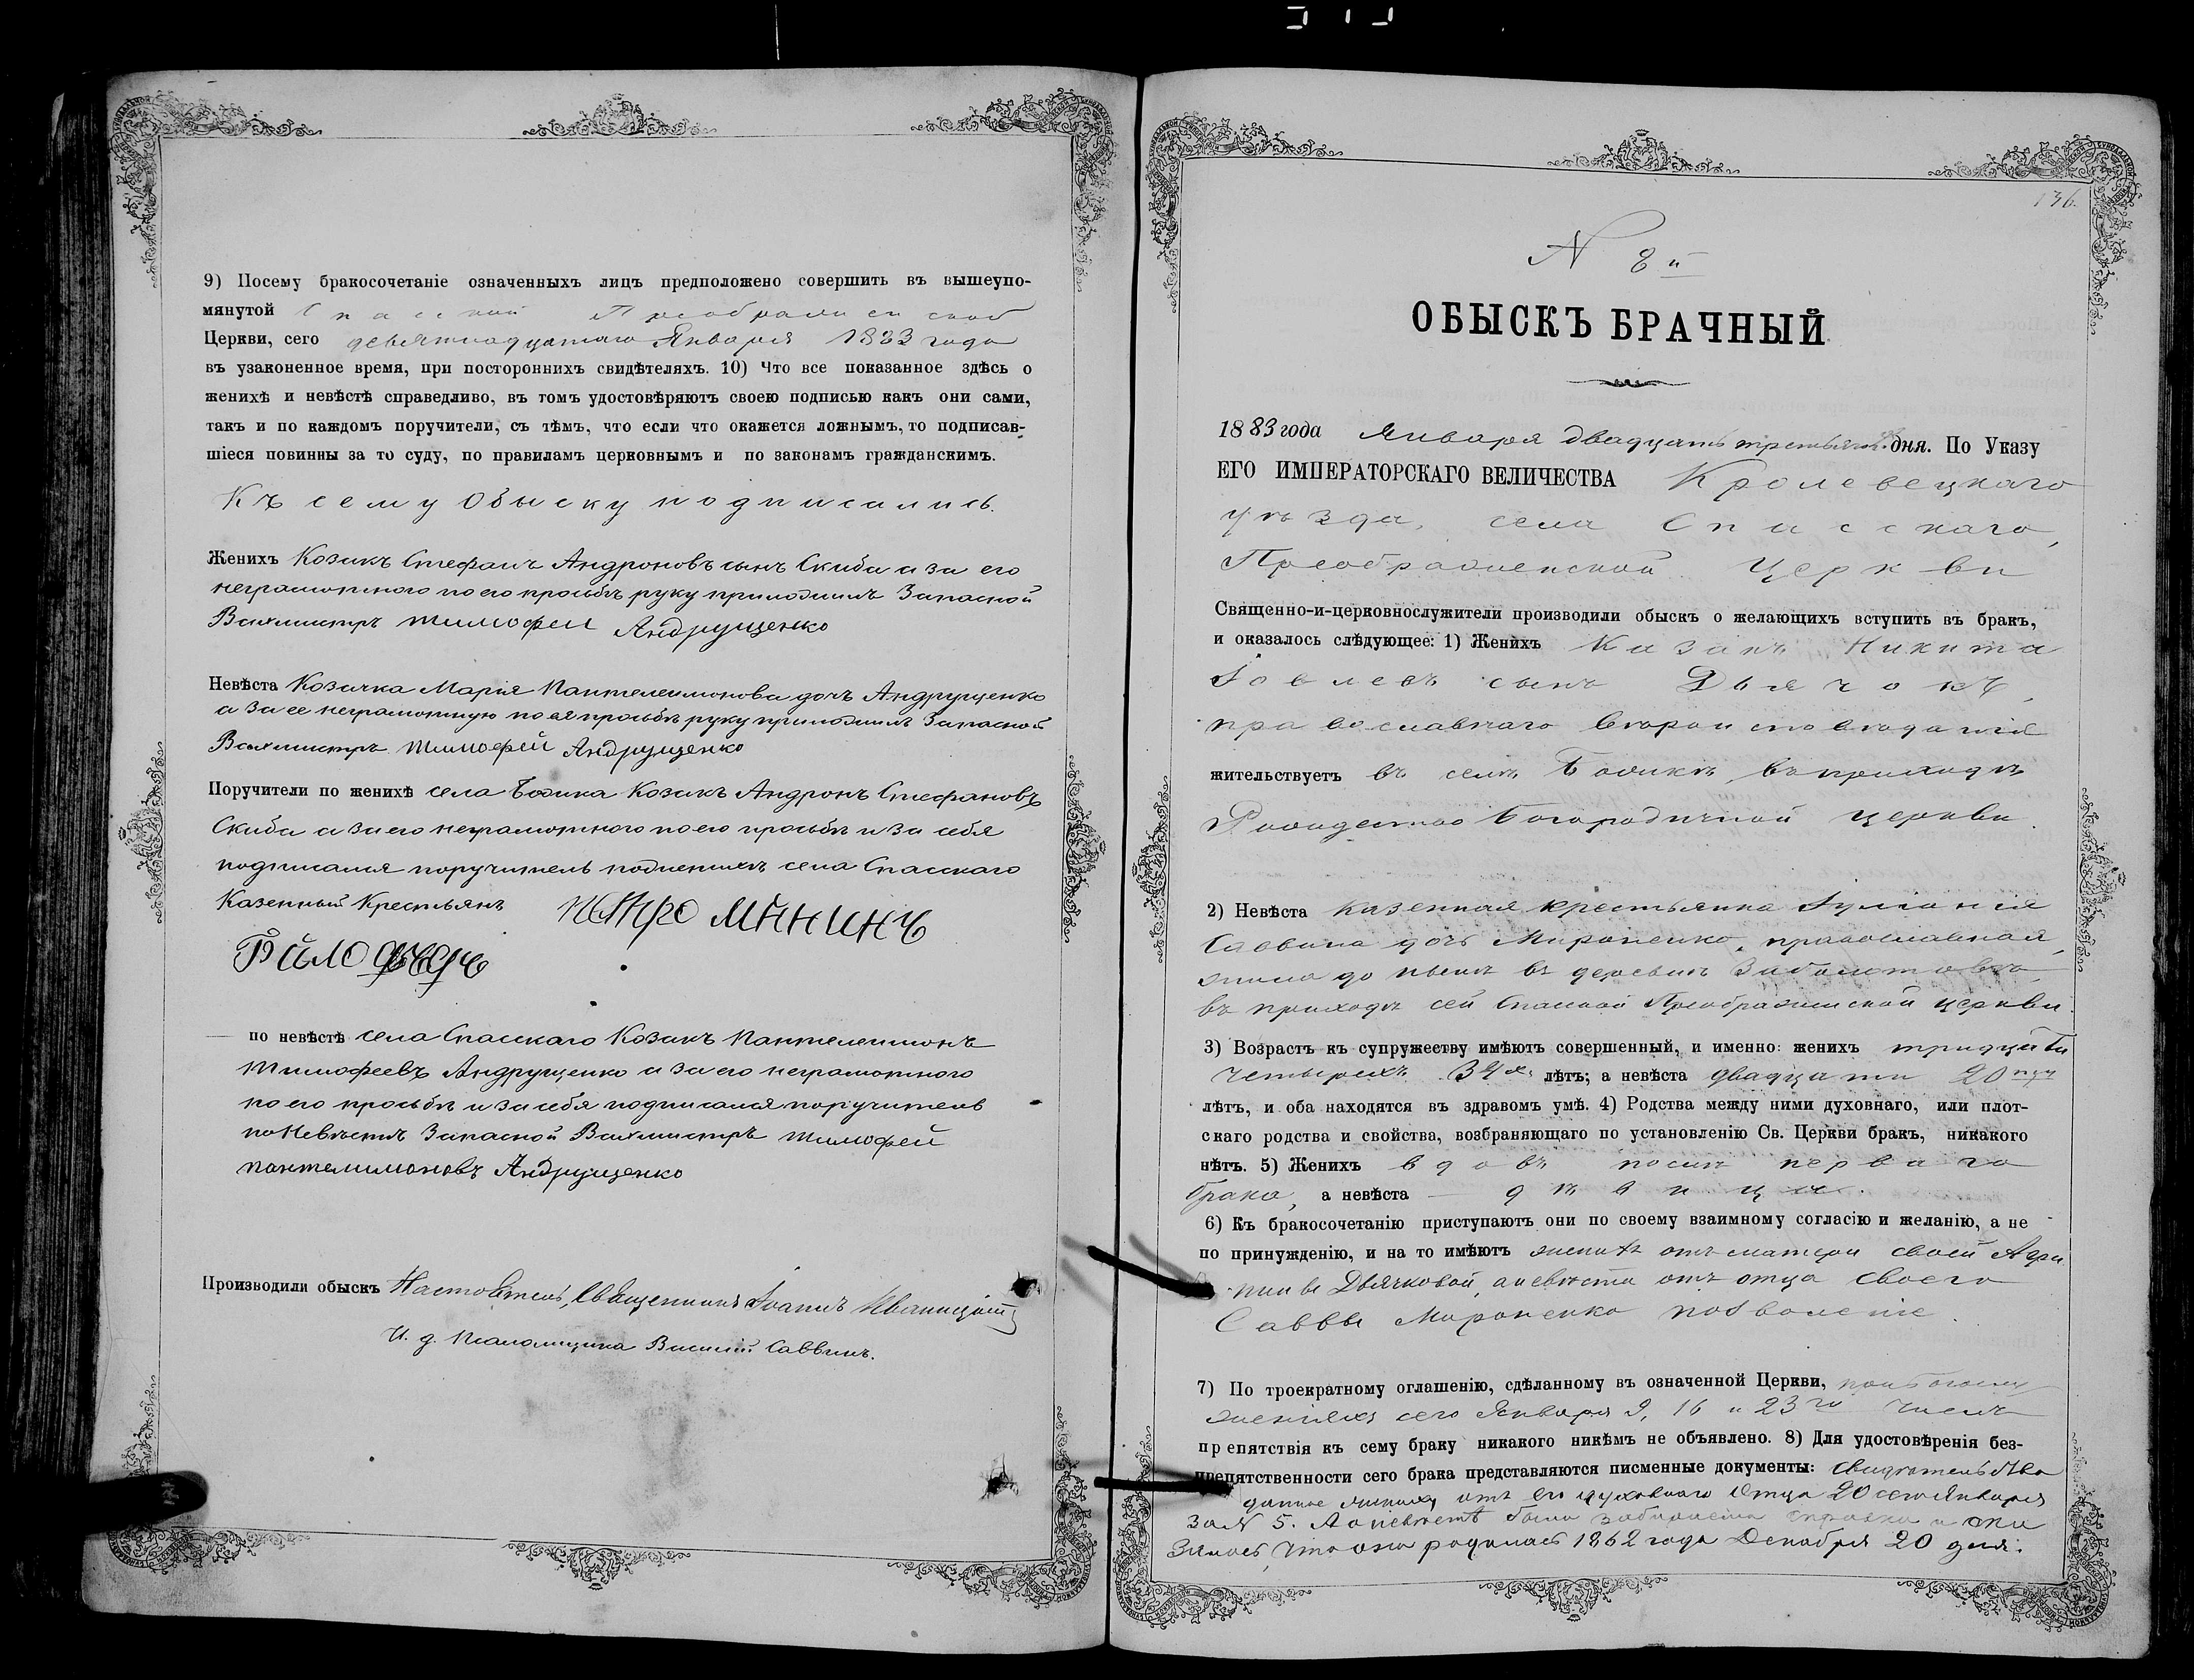 9) Посему бракосочетаніе означенныхъ лицъ предположено совершить въ вышеупо-
мянутой Спасской Преображенской
Церкви, сего девятнадцатаго Января 1883 года
въ узаконенное время, при постороннихъ свидѣтеляхъ. 10) Что все показанное здѣсь о
женихѣ и невѣстѣ справедливо, въ томъ удостовѣряютъ своею подписью какъ они сами,
такъ и по каждомъ поручители, съ тѣмъ, что если что окажется ложнымъ, то подписав-
шіеся повинны за то суду, по правиламъ церковнымъ и по законамъ гражданскимъ.
Къ сему обыску подписались.
Женихъ Козакъ Стефанъ Андроновъ сынъ Скиба а за его
неграмотного по его прозьбѣ руку приложилъ Запасной
Вахмистръ Тимофей Андрущенко
Невѣста Козачка Марія Пантелеимонова дочь Андрущенко
а за ее неграмотную по ея прозьбѣ руку приложилъ Запасной
Вахмистръ Тимофей Андрущенко
Поручители по женихѣ села Божика Козакъ Андронъ Стефановъ
Скиба а за его неграмотного по его прозьбѣ и за себя
подписался поручитель по женихѣ села Спасскаго
Казенный Крестьянъ Петро Мининъ
по невѣстѣ села Спасскаго Козакъ Пантелеимонъ
Тимофеевъ Андрущенко а за его неграмотного
по его прозьбѣ и за себя подписался поручитель
по Невѣстѣ Запасной Вахмистръ Тимофей
Пантелимоновъ Андрущенко
Производили обыскъ Настоятель, Священникъ Іоаннъ Иваницкій
И. д. Псаломщика Василій Саввинъ.
136.
N 8й
ОБЫСКЪ БРАЧНЫЙ
1883 года Января двадцать третьяго дня. По Указу
ЕГО ИМПЕРАТОРСКАГО ВЕЛИЧЕСТВА Кролевецкаго
уѣзда, села Спасскаго,
Преображенской Церкви
Священно-и-церковнослужители производили обыскъ о желающихъ вступить въ бракъ,
и оказалось слѣдующее: 1) Женихъ Казакъ Никита
Іовлевъ сынъ Дьячокъ,
православнаго вѣроисповѣданія
жительствуетъ въ селѣ Божикѣ, въ приходѣ
Рождество Богородичной церкви.
2) Невѣста казенная крестьянка Іуліанія
Саввина дочь Мироненко, православная,
жила до нынѣ въ деревнѣ Заболотовѣ
въ приходѣ сей Спасской Преображенской церкви.
3) Возрастъ къ супружеству имѣютъ совершенный, и именно: женихъ тридцати
четырехъ 34х. лѣтъ; а невѣста двадцати 20
лѣтъ, и оба находятся въ здравомъ умѣ. 4) Родства между ними духовнаго, или плот-
скаго родства и свойства, возбраняющаго по установленію Св. Церкви бракъ, никакого
нѣтъ. 5) Женихъ вдовъ послѣ перваго
брака, а невѣста – дѣвица.
6) Къ бракосочетанію приступаютъ они по своему взаимному согласію и желанію, а не
по принужденію, и на то имѣютъ женихъ отъ матери своей Агри
пины Дьячковой, а невѣста отъ отца своего
Саввы Мироненко позволеніе.
7) По троекратному оглашенію, сдѣланному въ означенной Церкви,
сего Января 9, 16 и 23го числъ
препятствія къ сему браку никакого никѣмъ не объявлено. 8) Для удостовѣренія без-
препятственности сего брака представляются писменные документы: свидѣтельство
данное жениху отъ его духовнаго Отца 20 сего Января
за N 5. А о невѣстѣ была справка и ока
залось, что она родилась 1862 года Декабря 20 дня.